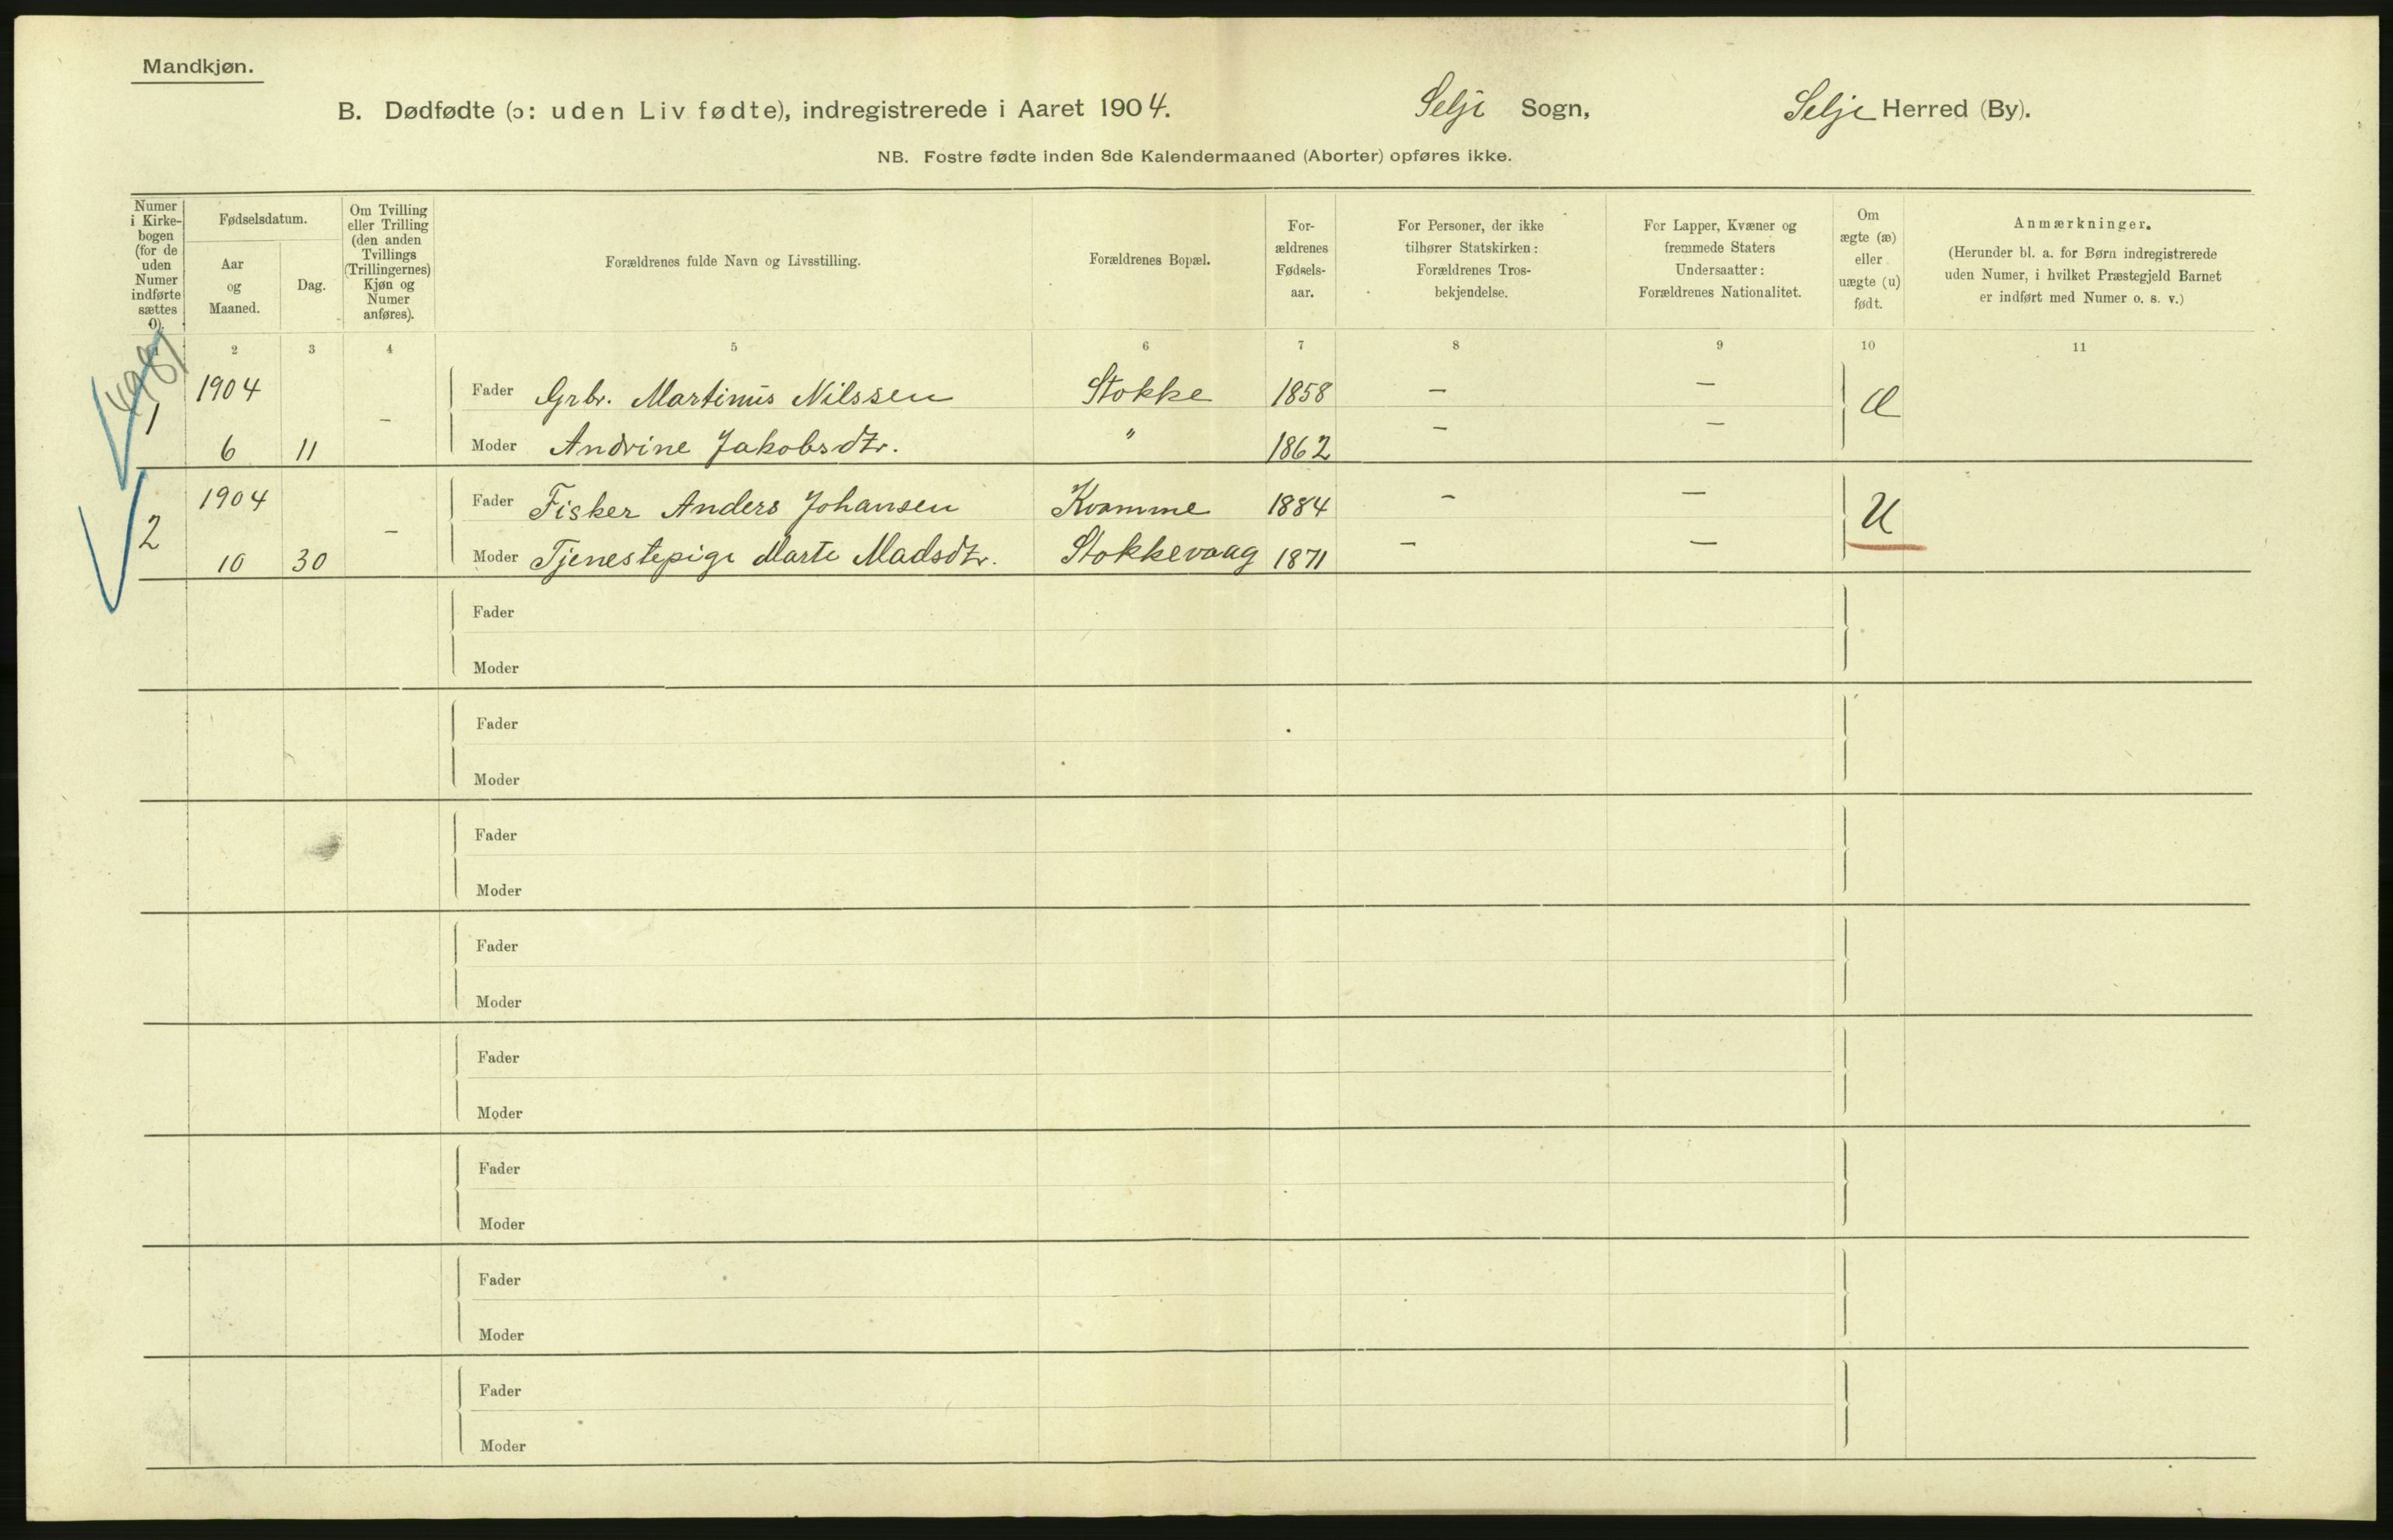 Mandkjøn.
B. Dødfødte (ɔ: uden Liv fødte), indregistrerede i Aaret 1904. Selje Sogn, Selje Herred (By).
NB. Fostre fødte inden 8de Kalendermaaned (Aborter) opføres ikke.
Numer
i Kirke-
bogen
(for de
uden
Numer
indførte
sættes
0).
Fødselsdatum.
Aar
og
Maaned.
Dag.
Om Tvilling
eller Trilling
(den anden
Tvillings
(Trillingernes)
Kjøn og
Numer
anføres).
Forældrenes fulde Navn og Livsstilling.
Forældrenes Bopæl.
For-
ældrenes
Fødsels-
aar.
For Personer, der ikke
tilhører Statskirken:
Forældrenes Tros-
bekjendelse.
For Lapper, Kvæner og
fremmede Staters
Undersaatter:
Forældrenes Nationalitet.
Om
ægte (æ)
eller
uægte (u)
født.
Anmærkninger.
(Herunder bl. a. for Børn indregistrerede
uden Numer, i hvilket Præstegjeld Barnet
er indført med Numer o. s. v.)
2 3 4 5 6 7 8 9 10 11
1904 Fader Grbr. Martinus Nilssen Stokke 1858 — — Æ
1 —
6 11 Moder Andrine Jakobsdtr. " 1862 — —
1904 Fader Fisker Anders Johansen Kvamme 1884 — — U
2 —
10 30 Moder Tjenestepige Marte Madsdtr. Stokkevaag 1871 — —
Fader
Moder
Fader
Moder
Fader
Moder
Fader
Moder
Fader
Moder
Fader
Moder
Fader
Moder
Fader
Moder